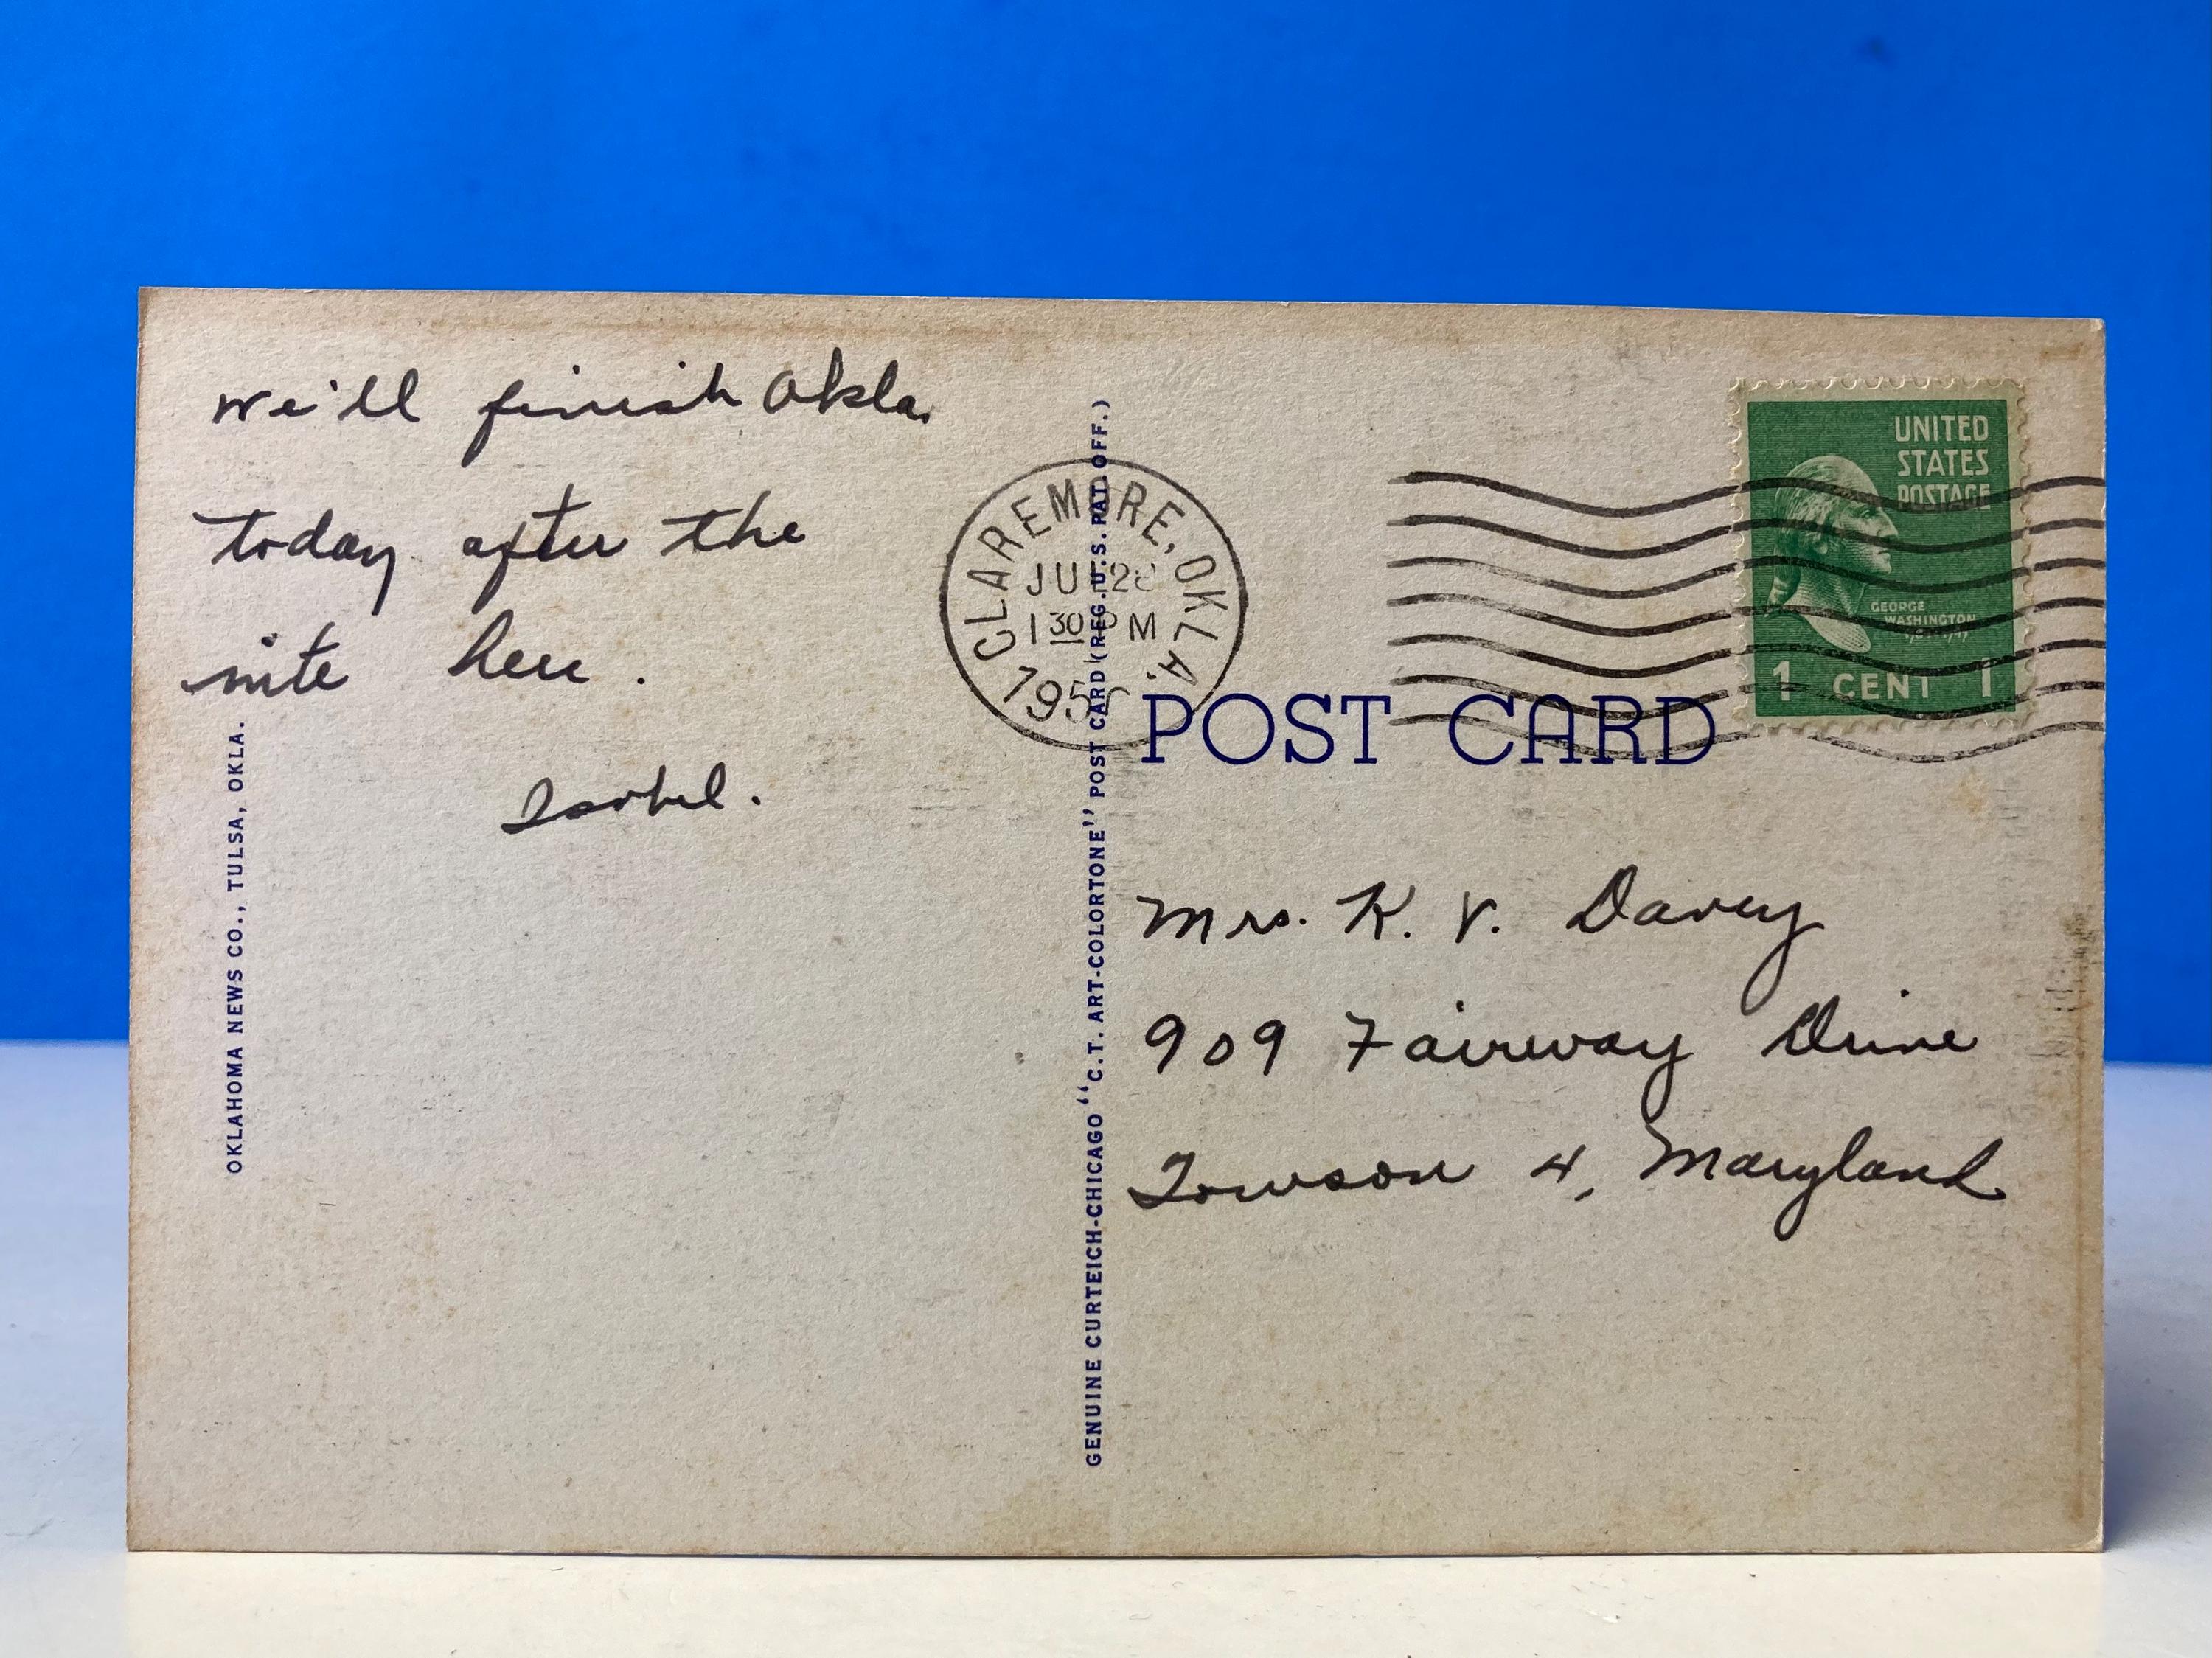 we'll finish Okla.
today after the
nite here.
Isobel.
OKLAHOMA NEWS CO., TULSA, OKLA.
GENUINE CURTEICH-CHICAGO "C.T. ART-COLORTONE" POST CARD (REG. U.S. PAT. OFF.)
CLAREMORE, OKLA.
1 30 PM
POST CARD
UNITED
STATES
POSTAGE
GEORGE
WASHINGTON
1 CENT 1
Mrs. K. V. Davey
909 Fairway Drive
Towson 4, Maryland